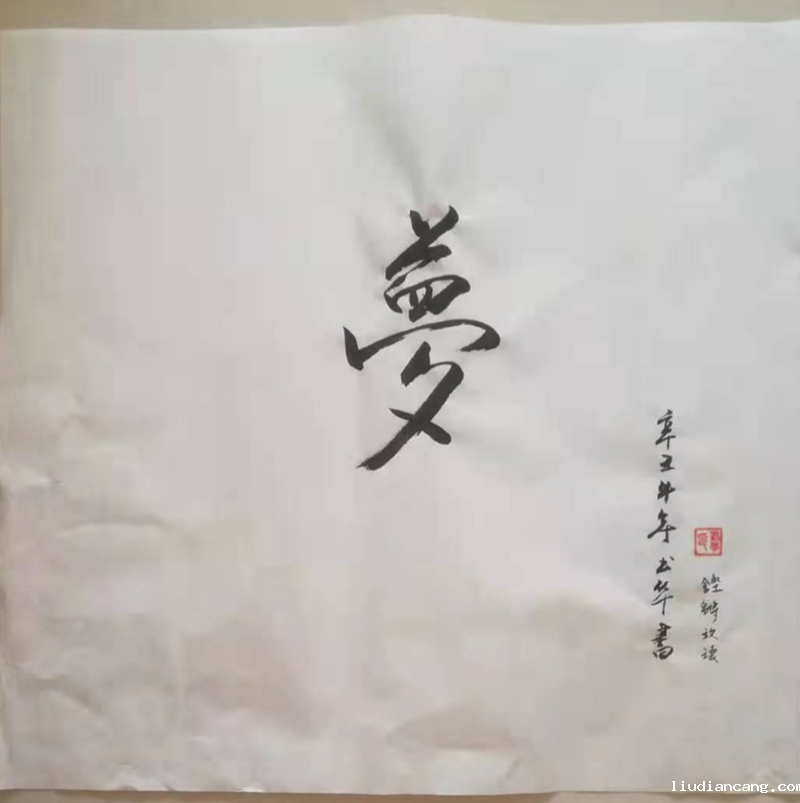 夢
辛丑牛年华書
鏗鏘
liudiancang.com